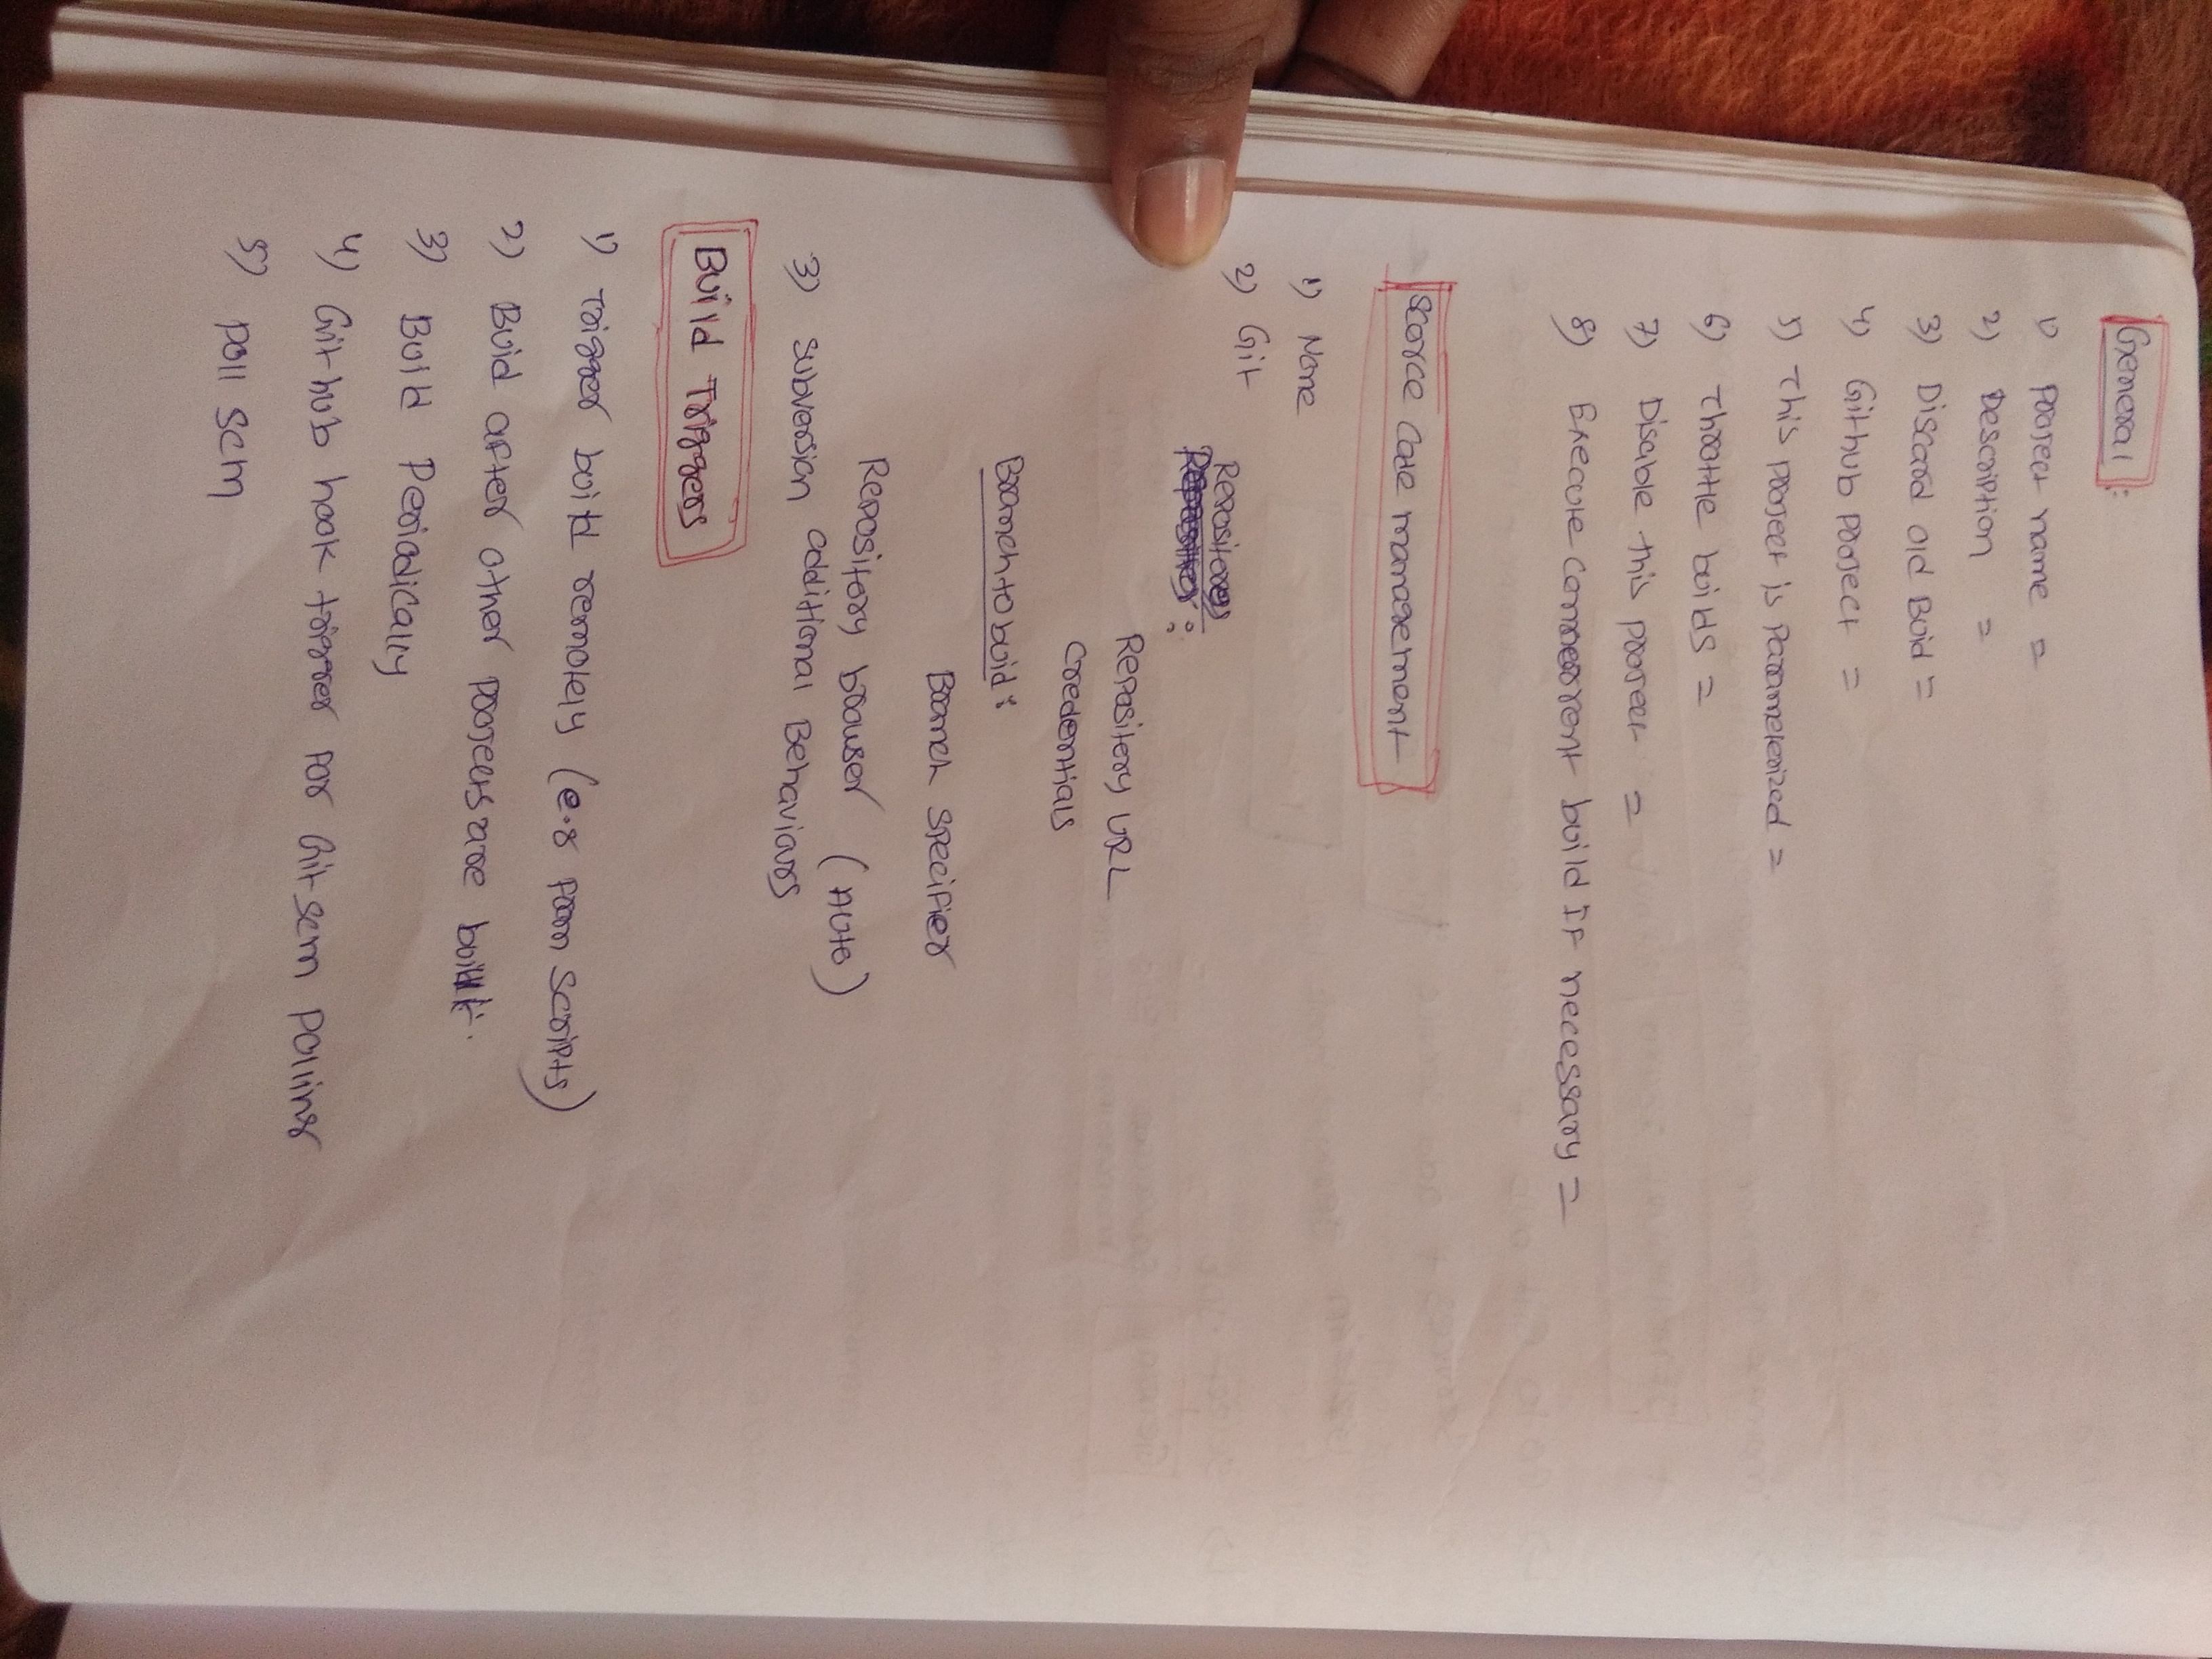 General :
1) Project name =
2) Description =
3) Discard old Buid =
4) Github project =
5) This project is Parameterized =
6) Throttle builds =
7) Disable this project =
8) Execute concurrent build IF necessary =
Scorce Code management
1) None
2) Git
Repository
:
Repository URL
Credentials
Branch to buid :
Branch specifier
Repository browser (Auto)
3) Subversion additional Behaviours
Build Triggers
1) Trigger build remotely (e.g from scripts)
2) Buid after other projects are built.
3) Build Periodically
4) Github hook trigger for Git scm polling
5) Poll scm